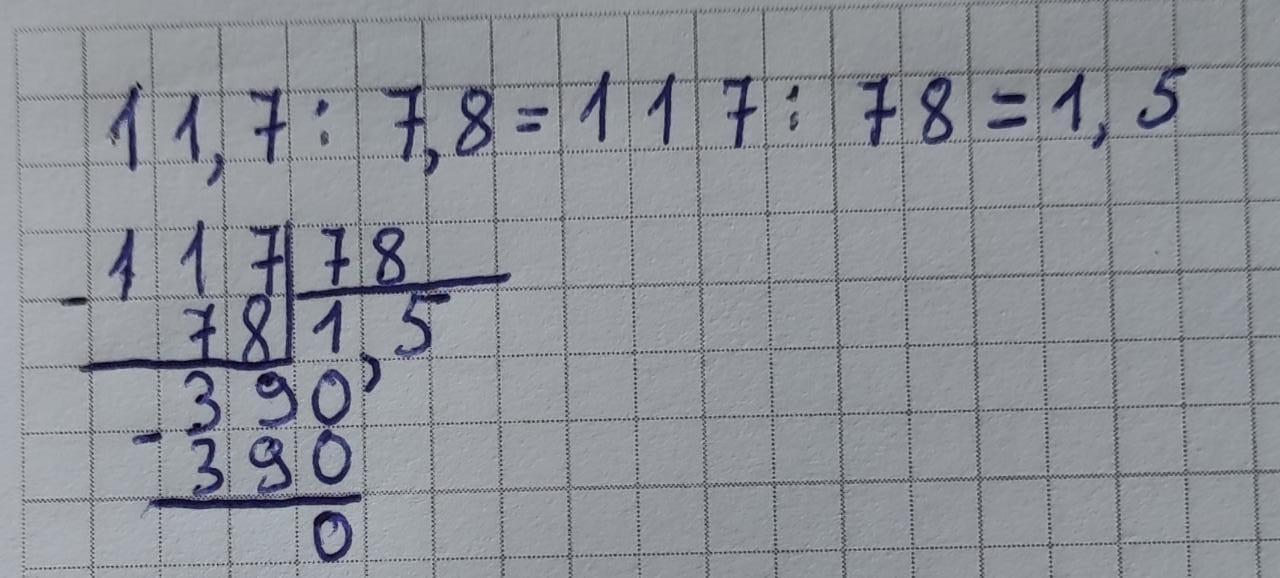 11,7 : 7,8 = 117 : 78 = 1,5
- 117 | 78
78 | 1,5
390
- 390
0